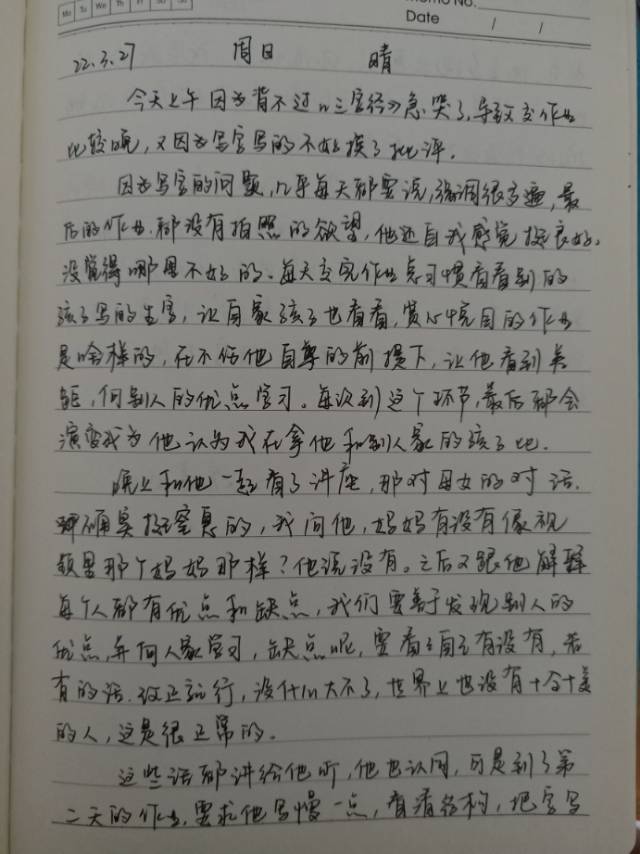 Mo Tu We Th Fr Sa Su
Memo No.
Date / /
22.3.27 周日 晴
今天上午因为背不过《三字经》急哭了,导致交作业
比较晚,又因为写字写的不好挨了批评。
因为写字的问题,几乎每天都要说,强调很多遍,最
后的作业,都没有拍照的欲望,他还自我感觉挺良好。
没觉得哪里不好的。每天交完作业总习惯看看别的
孩子写的生字,让自家孩子也看看,赏心悦目的作业
是啥样的,在不伤他自尊的前提下,让他看到差
距,向别人的优点学习。每次到这个环节,最后都会
演变成为他认为我在拿他和别人家的孩子比.
晚上和他一起看了讲座,那对母女的对话,
的确臭挺窒息的,我问他,妈妈有没有像视
频里那个妈妈那样?他说没有。之后又跟他解释
每个人都有优点和缺点,我们要善于发现别人的
优点,并向人家学习,缺点呢,要看看自己有没有,若
有的话.改正就行,没什么大不了,世界上也没有十全十美
的人,这是很正常的。
这些话都讲给他听,他也认同,可是到了第
二天的作业,要求他写慢一点,看看结构,把字写